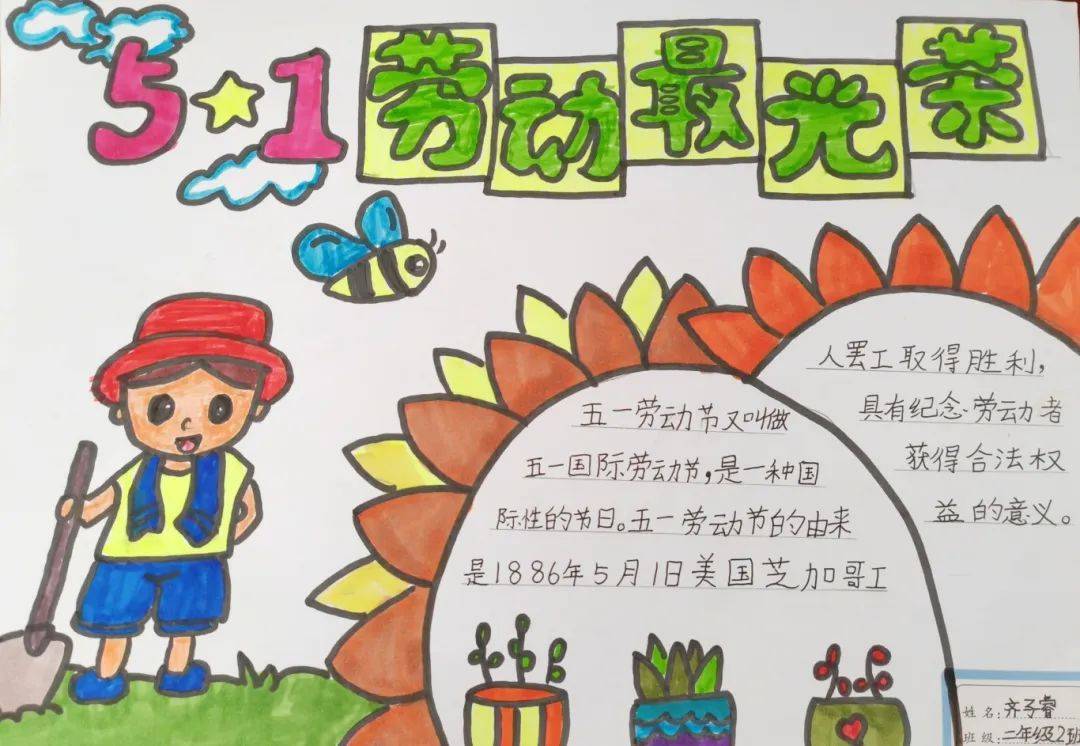 5★1 劳动最光荣
五一劳动节又叫做
五一国际劳动节,是一种国
际性的节日。五一劳动节的由来
是1886年5月1日美国芝加哥工
人罢工取得胜利,
具有纪念劳动者
获得合法权
益的意义。
姓名:齐子睿
班级:二年级2班